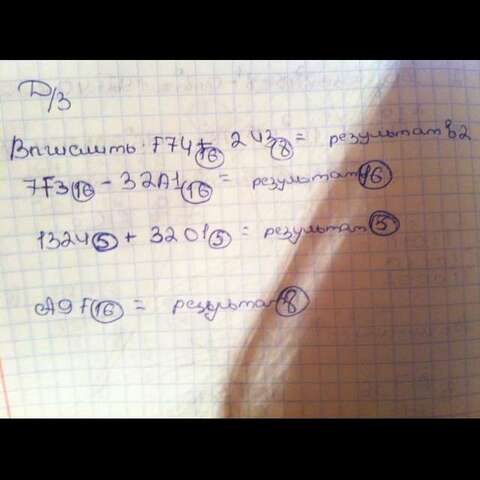 Д/З
Вычислить: F74₁₆ + 243₈ = результат в 2
7F3₁₆ - 32A1₁₆ = результат 16
1324₅ + 3201₅ = результат 5
A9F₁₆ = результат 8